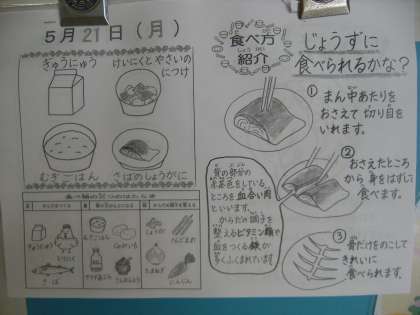 5月21日(月)
ぎゅうにゅう
けいにくとやさいの
につけ
むぎごはん
さばのしょうがに
食べ方
紹介
しょうかい
じょうずに
食べられるかな？
① まん中あたりを
おさえて 切り目を
いれます。
② おさえたところ
から 身をはずして
食べます。
③ 骨だけをのこして
きれいに
食べられます。
質の部分の
赤茶色をしている
ところを血合い肉
といいます。
からだの調子を
整えるビタミン類や
血をつくる鉄が
多くふくまれています
ぎゅうにゅう
とりにく
さば
むぎごはん
じゃがいも
さとう
こんにゃく
しょうが
たまねぎ
にんじん